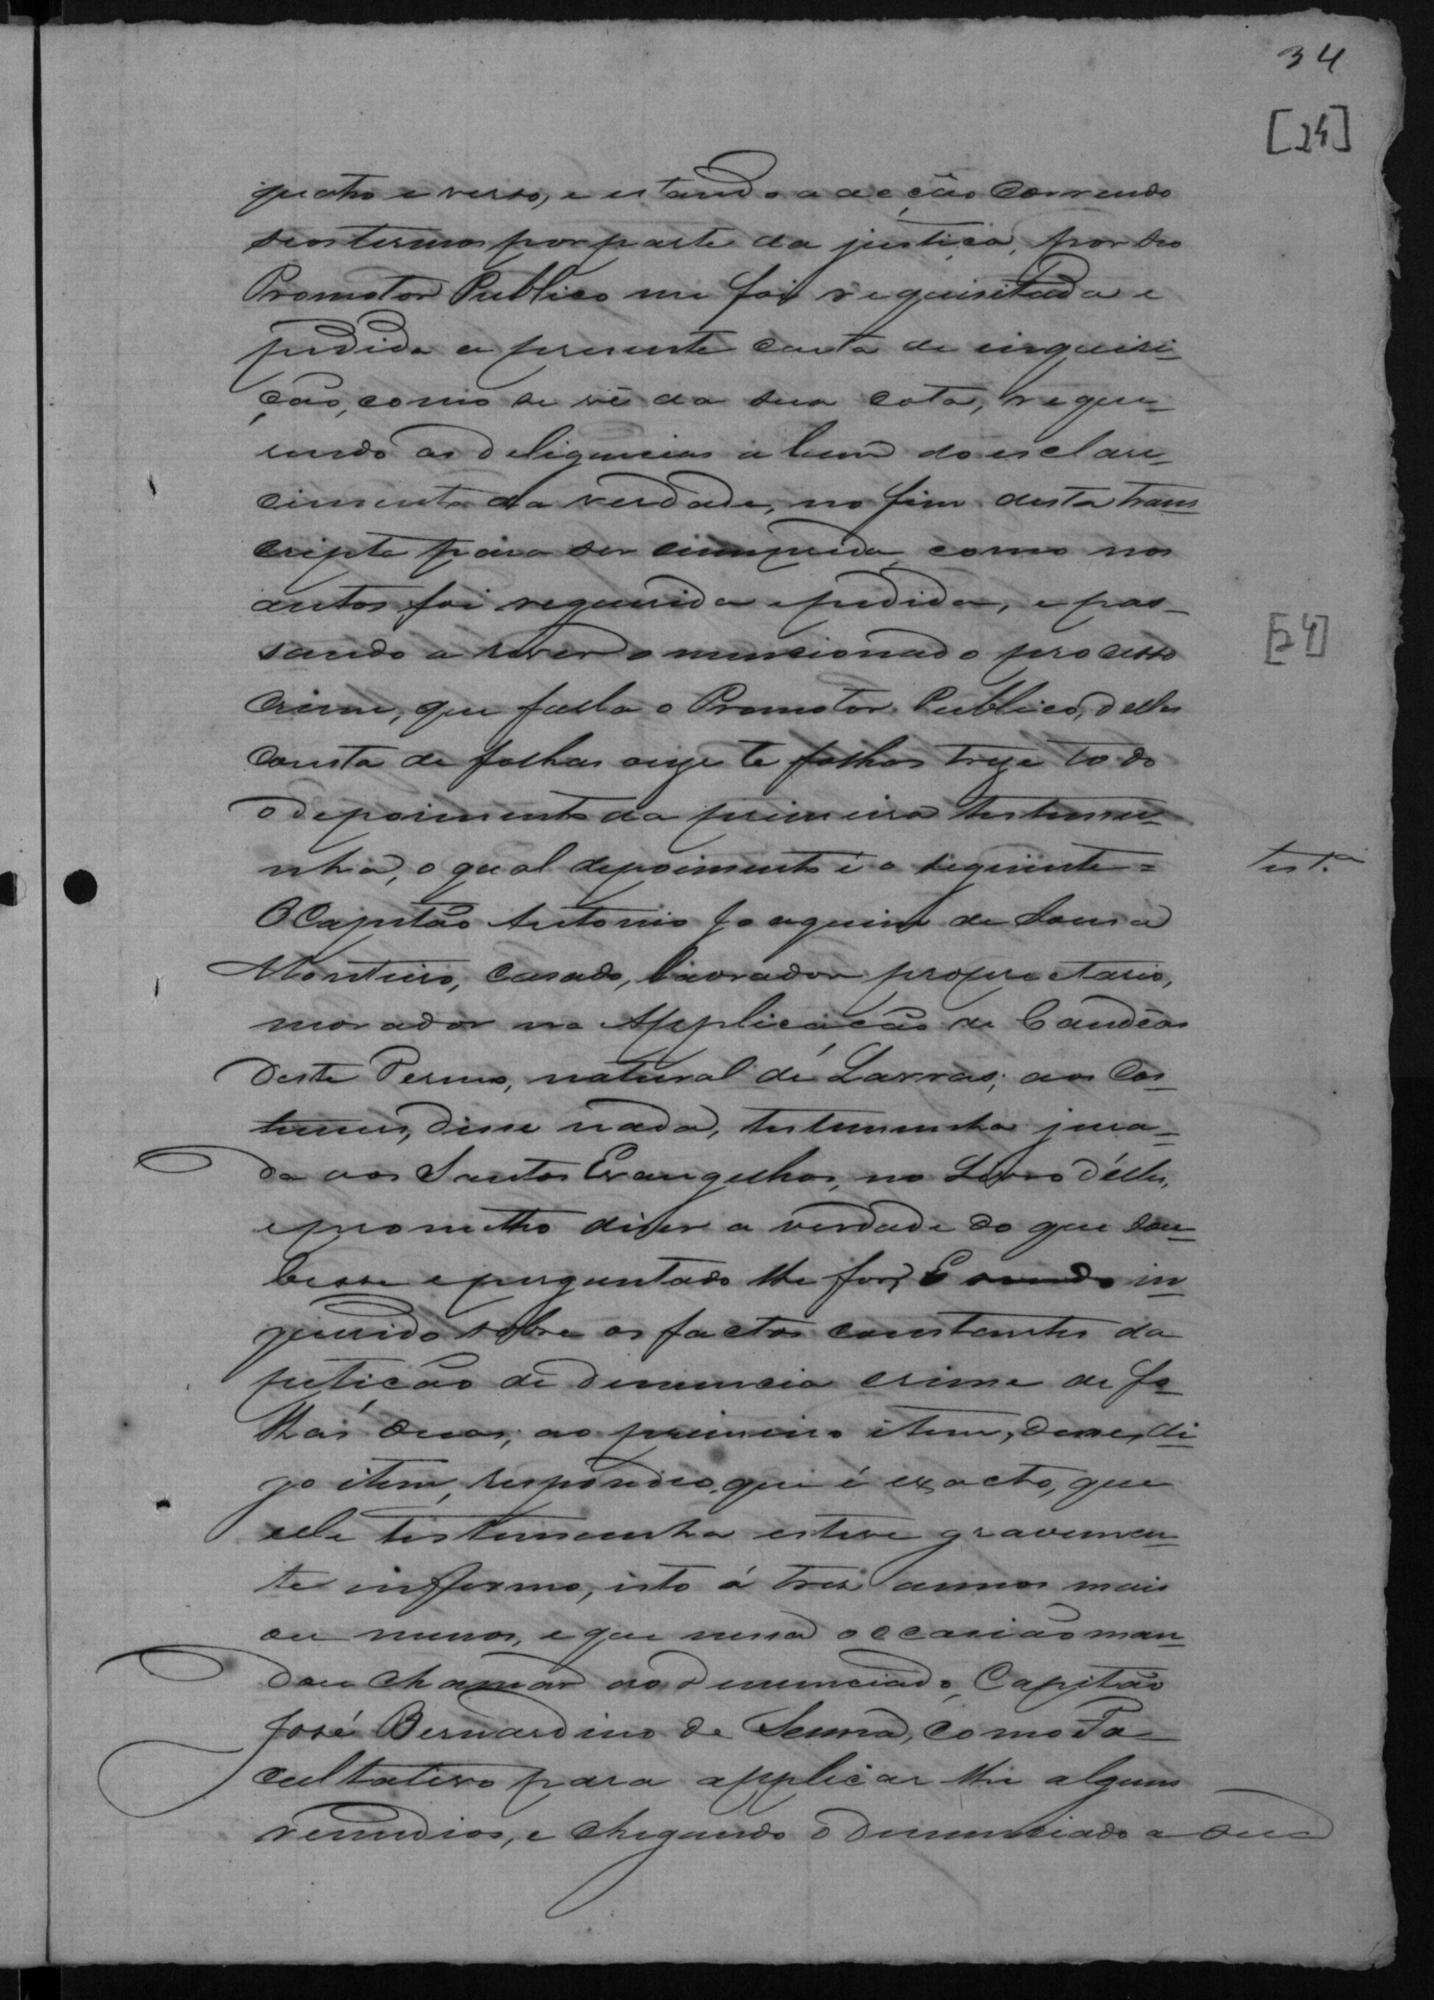 34
[24]
quatro e verso, e estando a acção correndo
seos termos por parte da justiça, por seo
Promotor Publico me foi requisitada e
pedida a presente carta de inquiri-
ção, como se vê da sua cota, reque-
rendo as deligencias a bem do esclare-
cimento da verdade, no fim desta trans
cripta para ser cumprida, como nos
autos foi requerida e pedida, e pas-
sando a rever o mencionado processo
[24]
crime, que falla o Promotor Publico, delles
consta de folhas onze te folhas treze todo
o depoimento da primeira testemu-
nha, o qual depoimento é o seguinte =
test.a
O Capitão Antonio Joaquim de Sousa
Monteiro, casado, lavrador proprietario,
morador na Applicação de Candêas
deste Termo, natural de Lavras; aos Cos-
tumes, disse nada, testemunha jura-
da aos Santos Evangelhos, no Livro d'elles,
e prometteo dizer a verdade do que sou-
besse e perguntado lhe for, E sendo in
querido sobre os factos constantes da
petição de denuncia crime de fo
lhas duas; ao primeiro item, disse, di-
go item, respondeo que é exacto, que
elle testemunha esteve gravemen-
te infermo, isto á tres annos mais
ou menos, e que nessa occasião man-
dou chamar ao denunciado, Capitão
José Bernardino de Senna, como Fa-
cultativo para applicar lhe alguns
remedios, e chegando o denunciado a sua